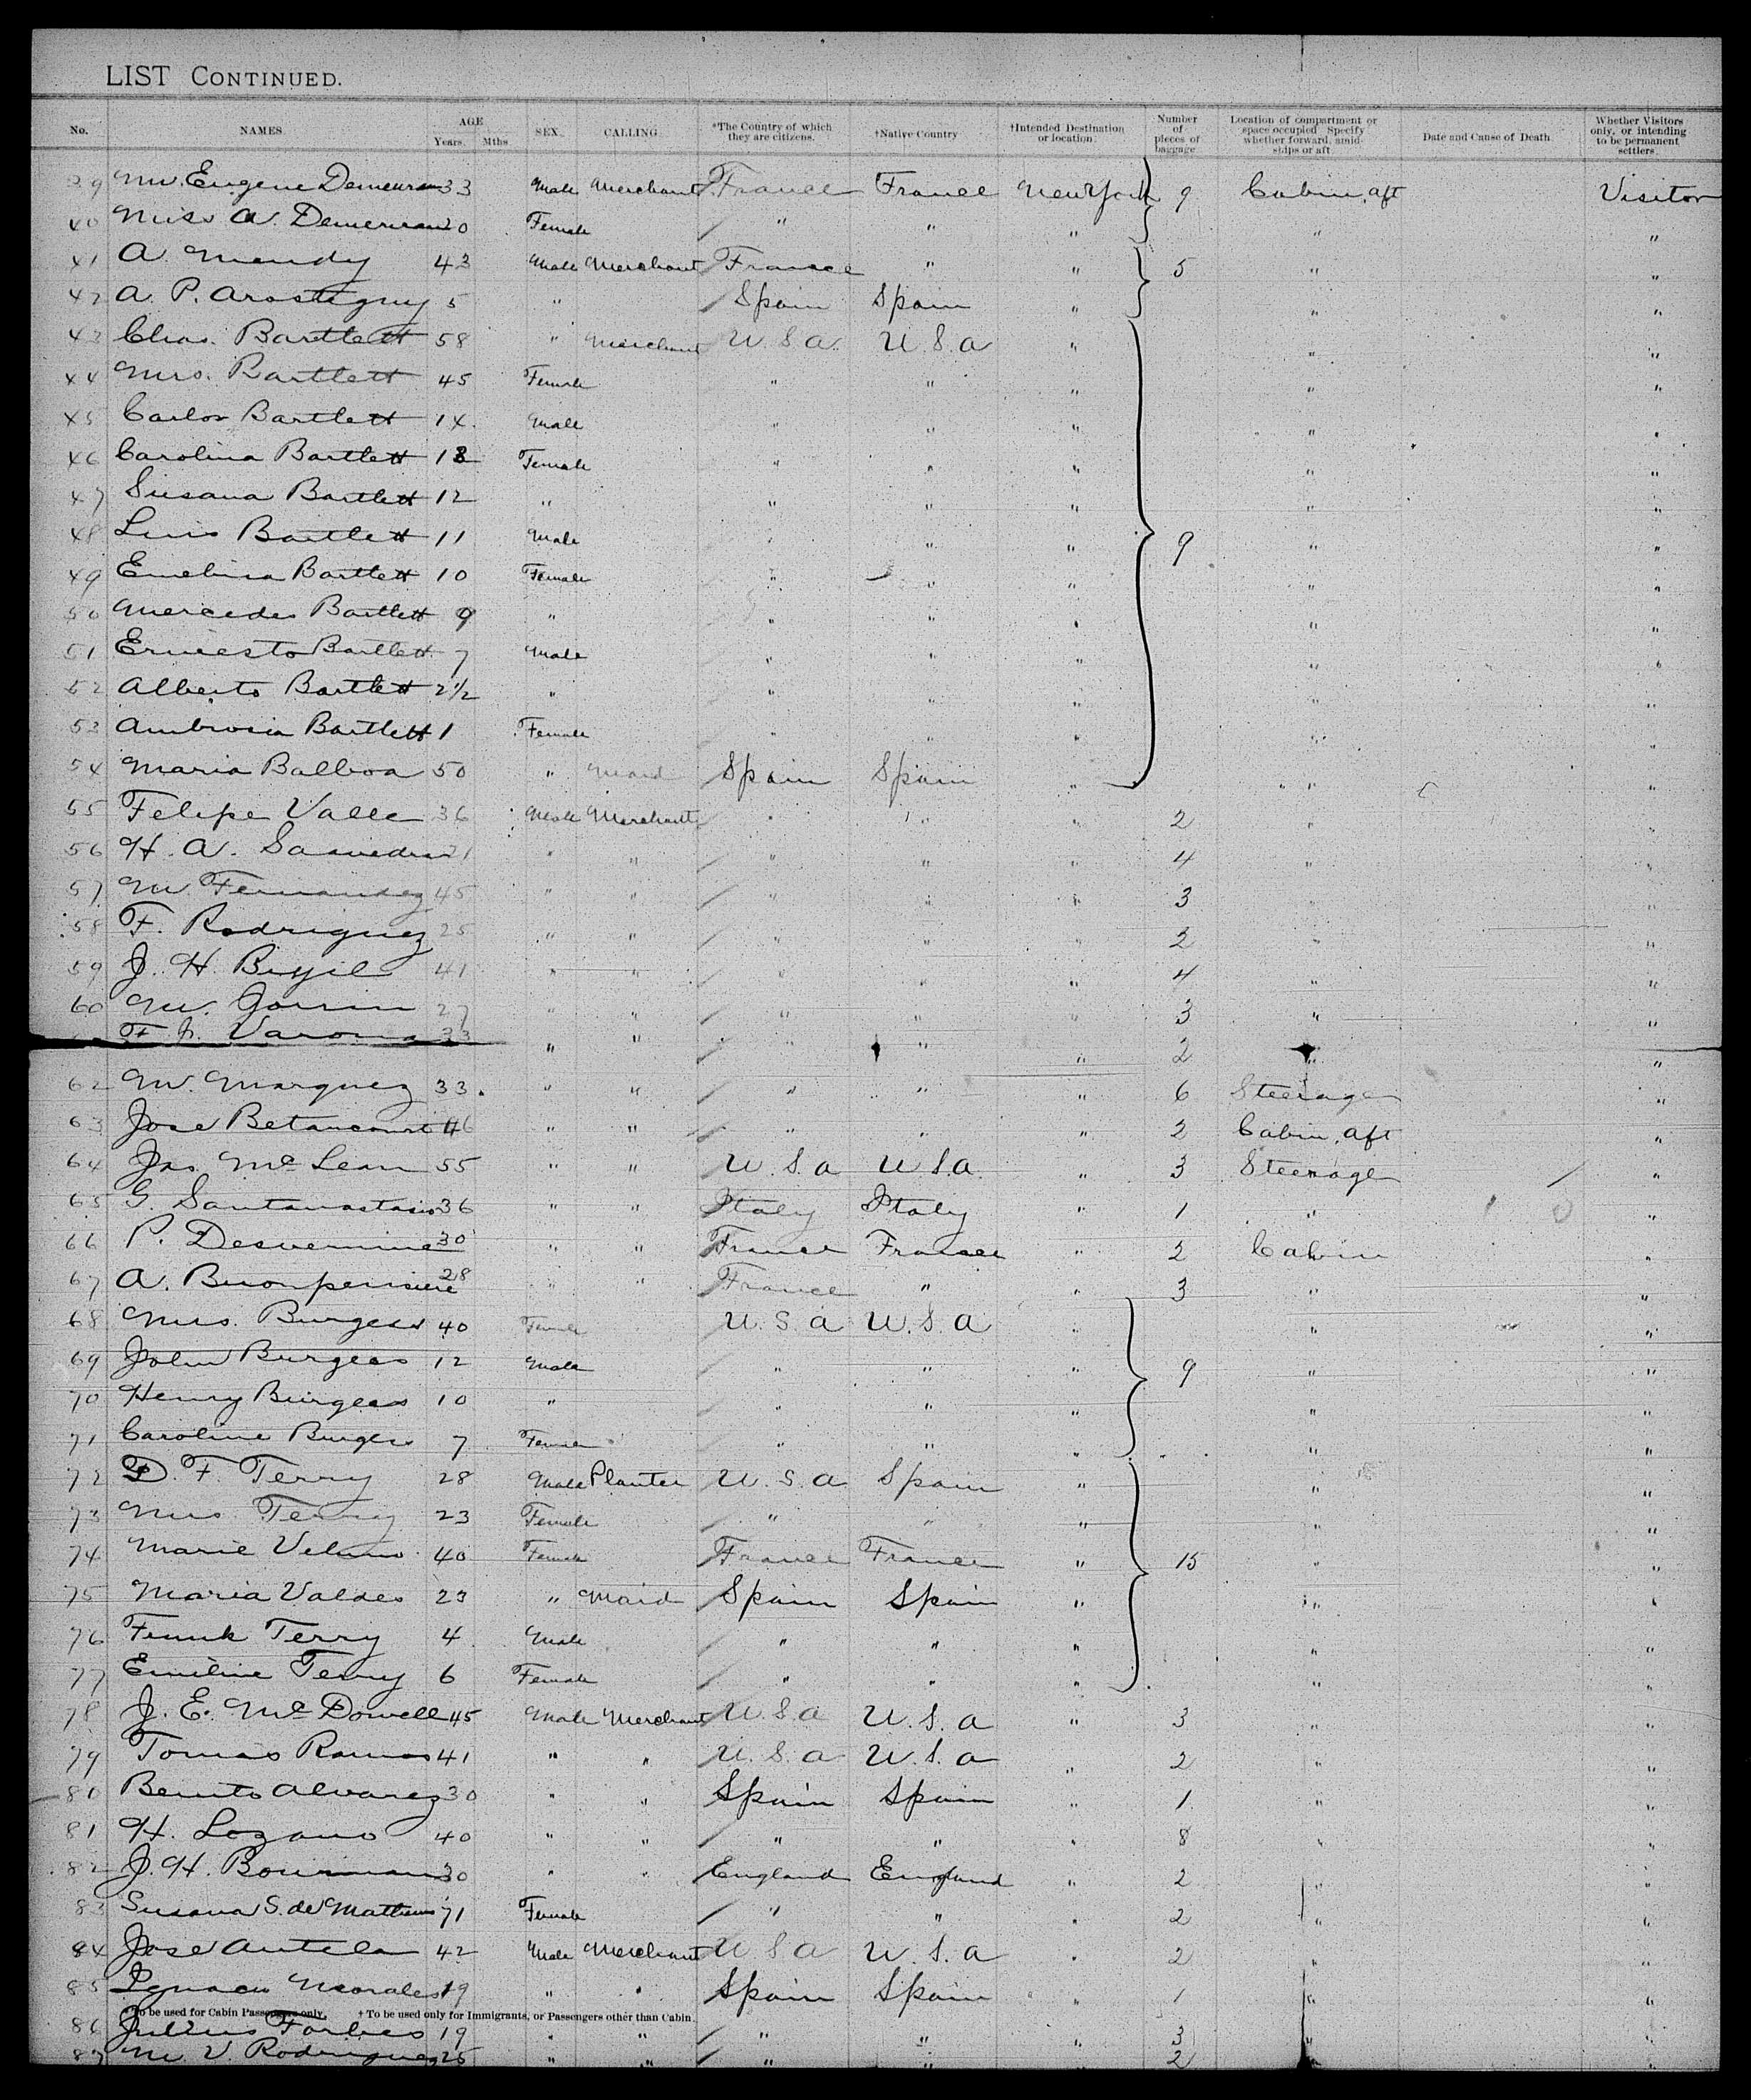 LIST CONTINUED.
No. NAMES. AGE Years. Mths. SEX. CALLING. *The Country of which they are citizens. †Native Country †Intended Destination or location. Number of pieces of baggage Location of compartment or space occupied Specify whether forward, amidships or aft Date and Cause of Death Whether Visitors only, or intending to be permanent settlers.
39 Eugene 33 Male Merchant France France New York 9 Cabin, aft Visitor
40 Miss A. 20 Female " " " " "
41 A. Mendy 43 Male Merchant France " " 5 " "
42 A. P. Arosteguy 5 " Spain Spain " " "
43 Chas. Bartlett 58 " Merchant U.S.A. U.S.A " " "
44 Mrs. Bartlett 45 Female " " " " "
45 Carlos Bartlett 14 Male " " " " "
46 Carolina Bartlett 13 Female " " " " "
47 Susana Bartlett 12 " " " " " "
48 Luis Bartlett 11 Male " " " 9 " "
49 Emelina Bartlett 10 Female " " " " "
50 Mercedes Bartlett 9 " " " " " "
51 Ernesto Bartlett 7 Male " " " " "
52 Alberto Bartlett 2½ " " " " " "
53 Ambrosia Bartlett 1 Female " " " " "
54 Maria Balboa 50 " Maid Spain Spain " " "
55 Felipe Valle 36 Male Merchant " " " 2 " "
56 H. A. Saavedra " " " " " 4 " "
57 M. Fernandez 45 " " " " " 3 " "
58 F. Rodriguez 25 " " " " " 2 " "
59 J. H. 41 " " " " " 4 " "
60 M. Gorrin 27 " " " " " 3 " "
F. Varona 33 " " " " " 2 " "
62 M. Marquez 33 " " " " " 6 Steerage "
63 Jose Betancourt 46 " " " " " 2 Cabin, aft "
64 Jas. McLean 55 " " U.S.A U.S.A. " 3 Steerage "
65 G. Santanastasio 36 " " Italy Italy " 1 " "
66 P. Desvernine 30 " " France France " 2 Cabin "
67 A. 28 " " France " " 3 " "
68 Mrs. Burgess 40 Female U.S.A U.S.A " " "
69 John Burgess 12 Male " " " 9 " "
70 Henry Burgess 10 " " " " " "
71 Caroline Burgess 7 Female " " " " "
72 D. F. Terry 28 Male Planter U.S.A Spain " " "
73 Mrs. Terry 23 Female " " " " "
74 Marie 40 Female France France " 15 " "
75 Maria Valdes 23 " Maid Spain Spain " " "
76 Frank Terry 4 Male " " " " "
77 Emiline Terry 6 Female " " " " "
78 J. E. McDowell 45 Male Merchant U.S.A U.S.A " 3 " "
79 Tomas Ramos 41 " " U.S.A U.S.A " 2 " "
80 Benito Alvarez 30 " " Spain Spain " 1 " "
81 H. Lozano 40 " " " " " 8 " "
82 J. H. Bowman 30 " " England England " 2 " "
83 Susana S. de Mathews 71 Female " " " 2 " "
84 Jose Antela 42 Male Merchant U.S.A U.S.A " 2 " "
85 Ignacio Morales 19 " " Spain Spain " 1 " "
* To be used for Cabin Passengers only. † To be used only for Immigrants, or Passengers other than Cabin.
86 Julius Forbes 19 " " " " " 3 " "
87 M. V. Rodriguez 25 " " " " " 2 " "